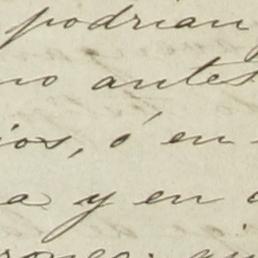 podrian
no antes
ios, ó en
a y en